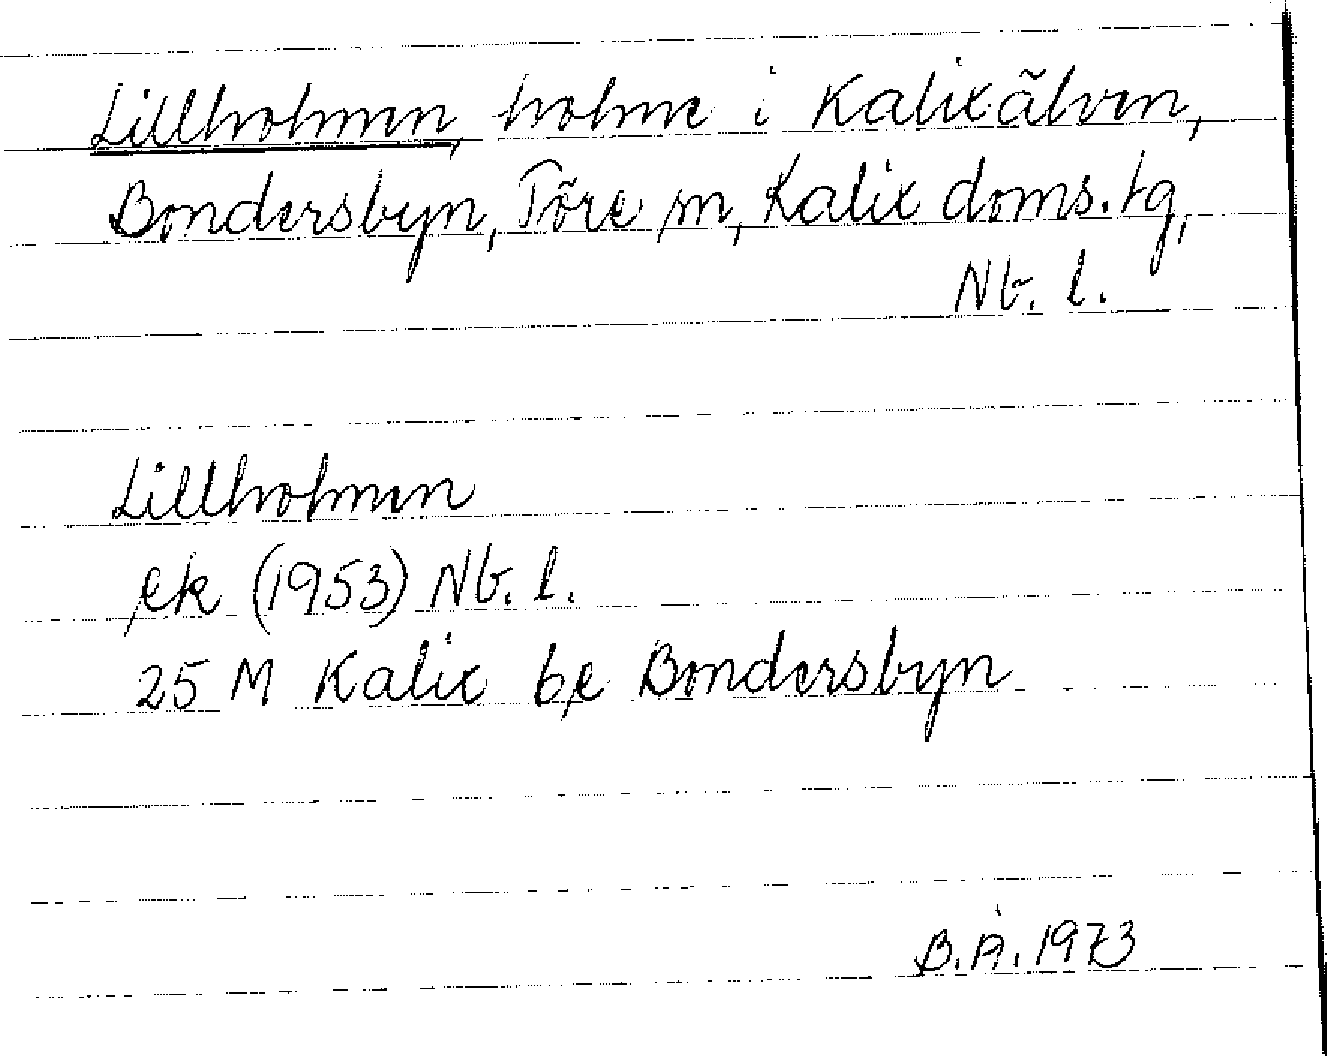 Lillholmen, holme i Kalixälven,
Bondersbyn, Töre sn, Kalix doms.tg,
Nb. l.
Lillholmen
ek (1953) Nb. l.
25 M Kalix be Bondersbyn
B.Å. 1973